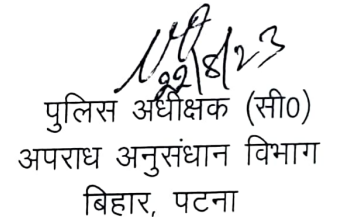 22/8/23
पुलिस अधीक्षक (सी0)
अपराध अनुसंधान विभाग
बिहार, पटना